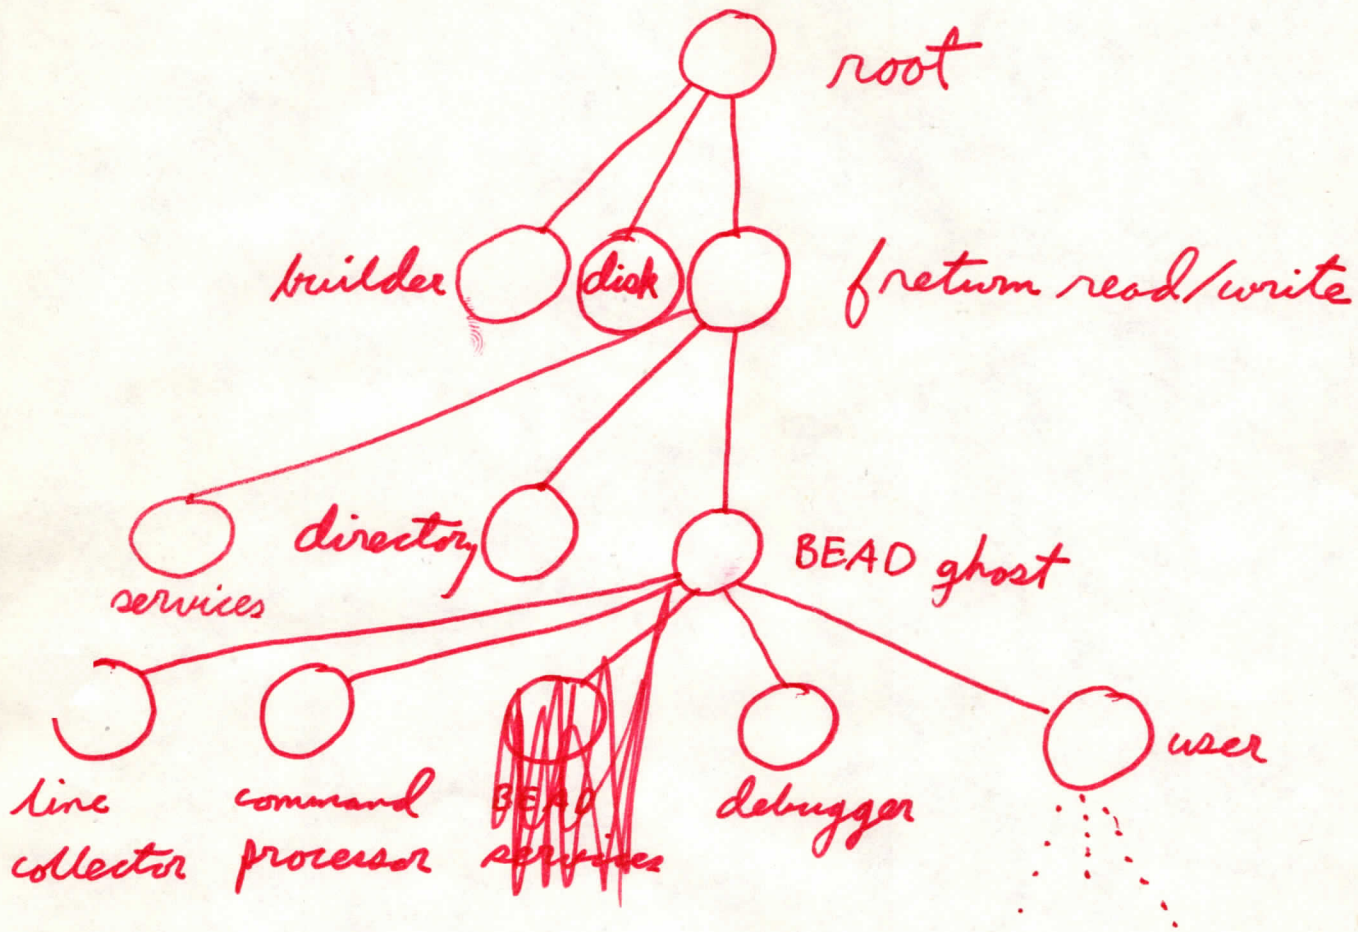 root
builder
disk
f return read/write
services
directory
BEAD ghost
line
collector
command
processor
BEAD
services
debugger
user